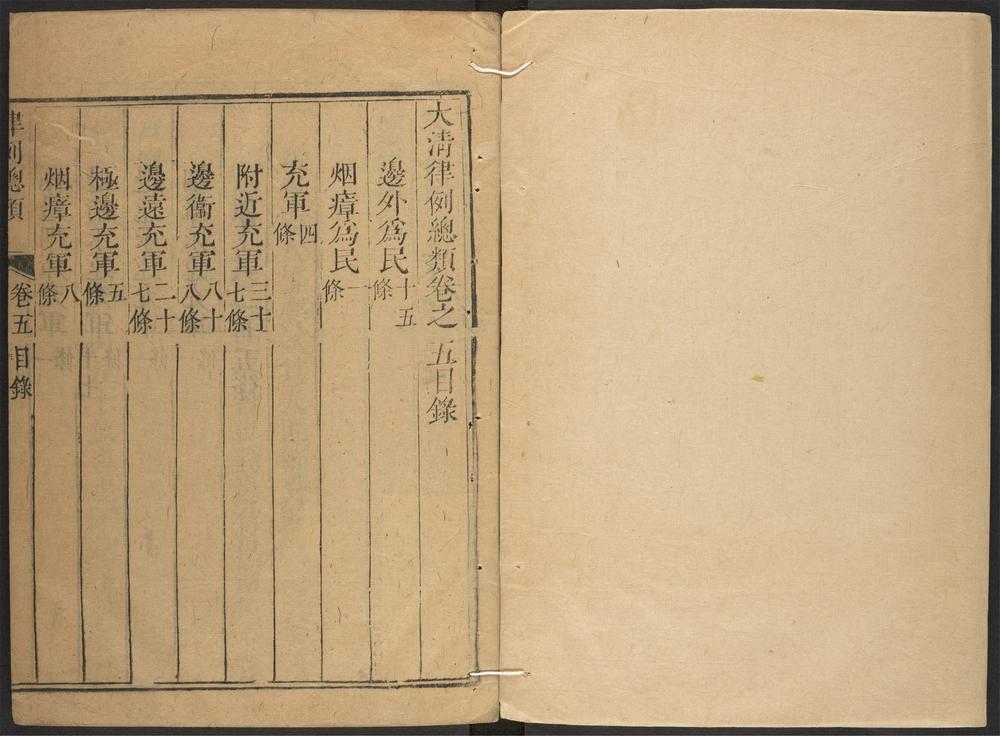 大清律例總類卷之五目錄
邊外爲民十五條
烟瘴爲民一條
充軍四條
附近充軍三十七條
邊衞充軍八十八條
邊遠充軍二十七條
極邊充軍五條
烟瘴充軍八條
律例總類 卷五 目錄